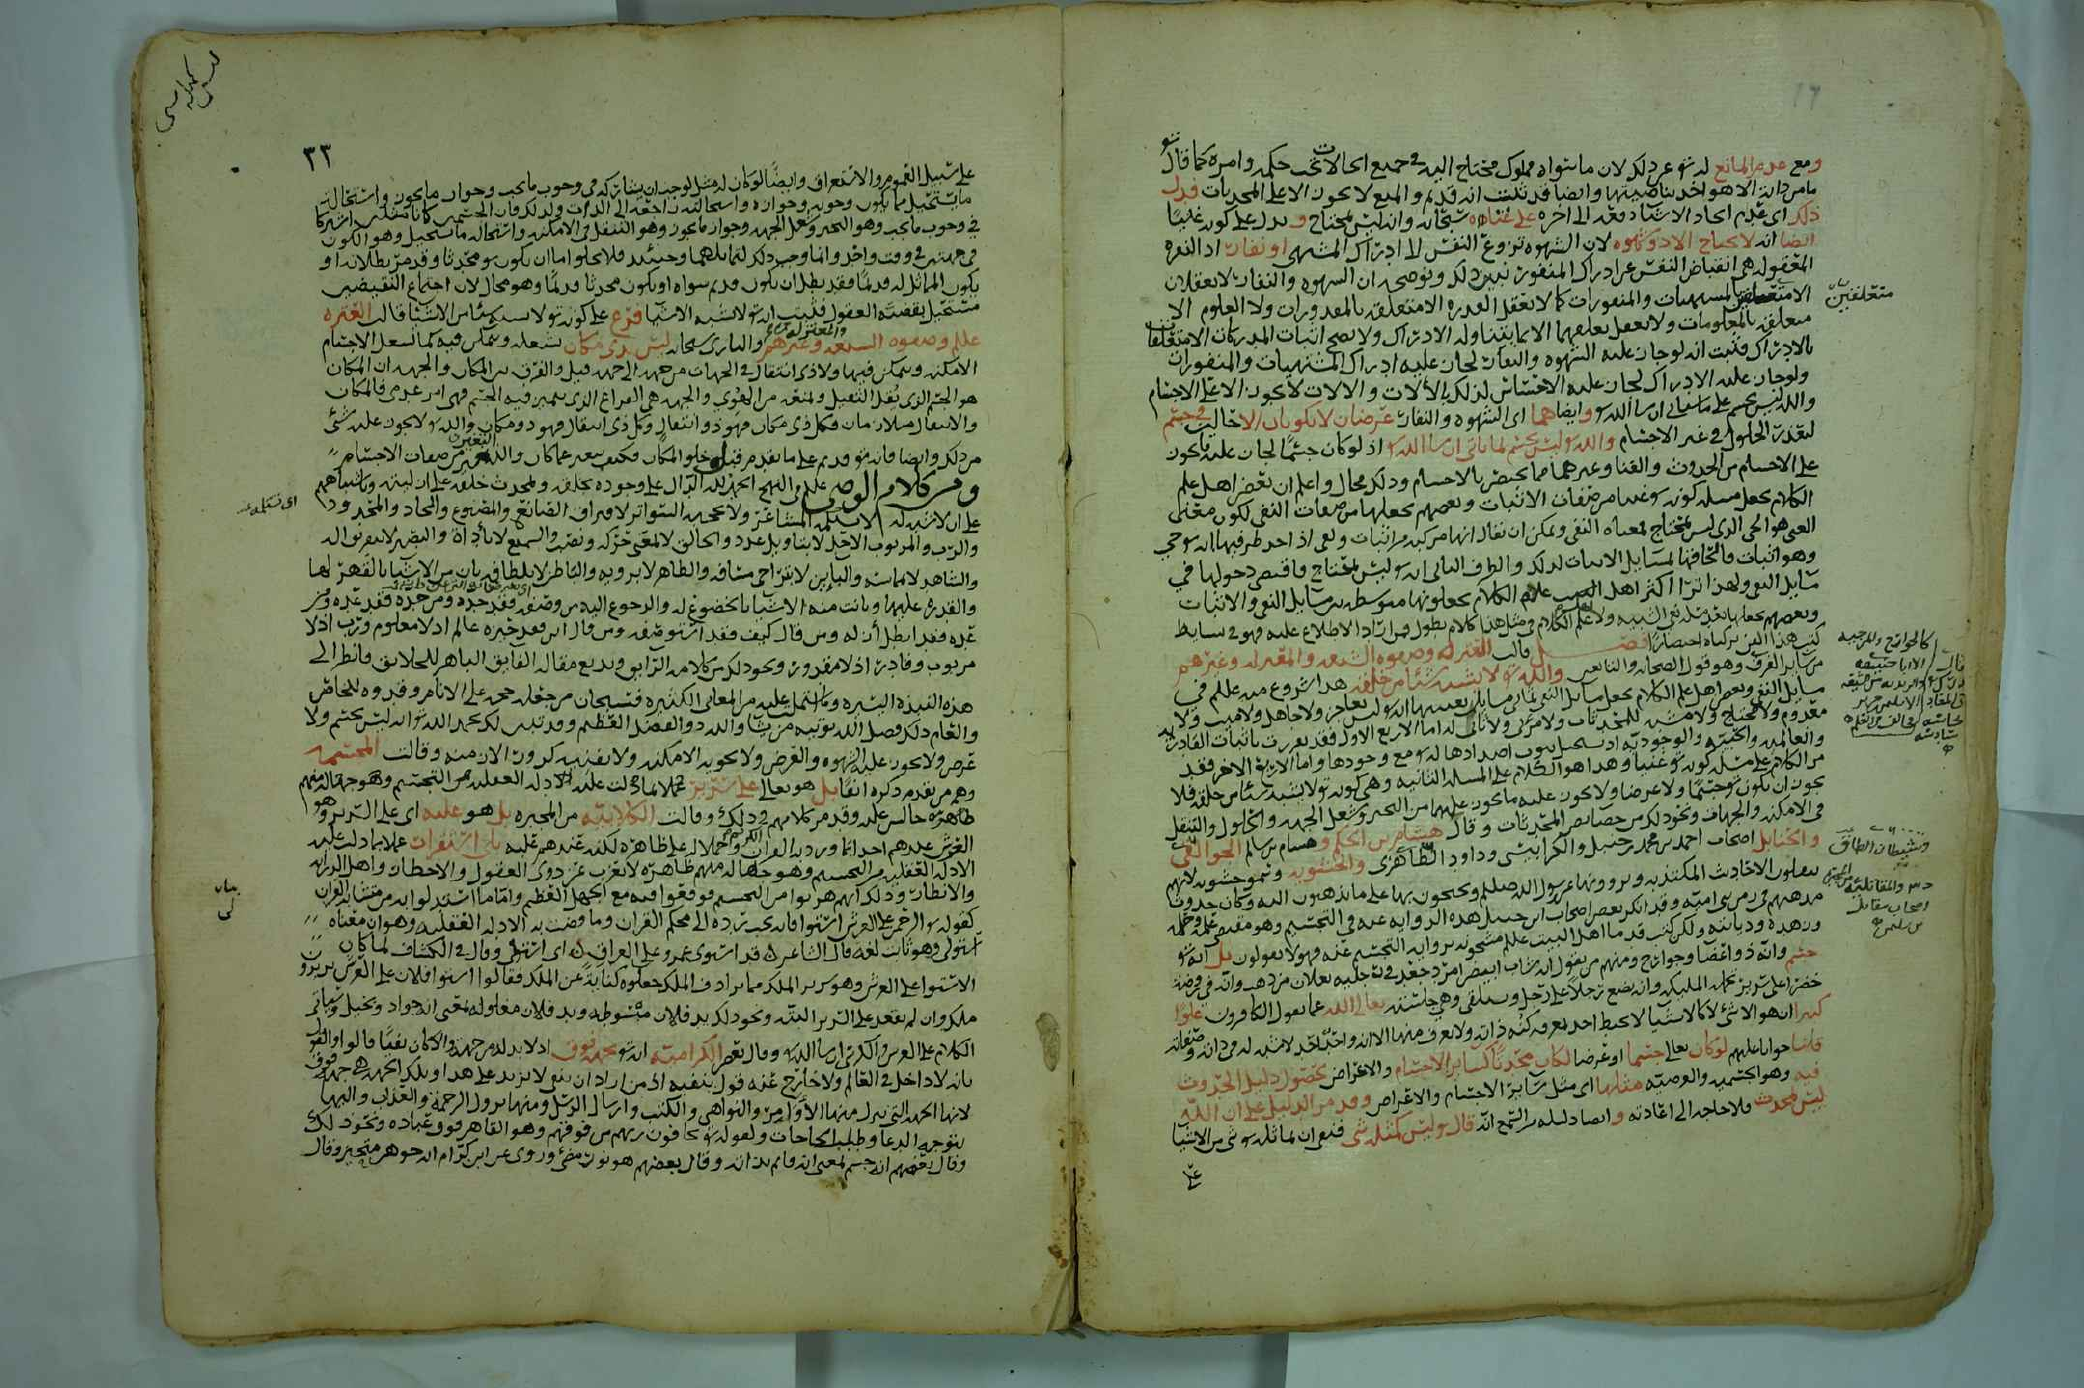 ومع عدم المانع له تعو عن ذلك لان ما سواه مملوك محتاج اليه في جميع الحالات تحت حكمه وامره كما قال تعو
ما من دابة الا هو اخذ بناصيتها وايضا فقد ثبت انه قديم والمنع لا يجوز الا على المحدثات فدل
ذلك اي عدم ايجاد الاشياء دفعة الى اخره على غناه سبحانه وانه ليس بمحتاج ويدل على كونه غنيا
ايضا انه لا يحتاج الا ذو شهوة لان الشهوة نزوع النفس الى ادراك المشتهى او نفار اذ النفرة
المعقولة هي انقباض النفس عن ادراك المنفور تبين ذلك وتوضحه ان الشهوة والنفار لا يعقلان
الا متعلقين بالمشتهيات والمنفورات كما لا تعقل القدرة الا متعلقة بالمقدورات ولا العلوم الا
متعلقة بالمعلومات ولا يعقل تعلقهما الا بما يتناوله الادراك ولا يصح اثبات المدركات الا متعلقا
بالادراك فثبت انه لو جاز عليه الشهوة والنفار لجاز عليه ادراك المشتهيات والمنفورات
ولو جاز عليه الادراك لجاز عليه الاحساس لذلك بالآلات والالات لا تجوز الا على الاجسام
والله ليس بجسم على ما سيأتي ان شا الله تعو وايضا هما اي الشهوة والنفار عرضان لا يكونان الا حالين في جسم
لتعذر الحلول في غير الاجسام والله تعو ليس بجسم لما ياتي ان شا الله تعو اذ لو كان جسما لجاز عليه ما يجوز
على الاجسام من الحدوث والفنا وغيرهما مما يختص بالاجسام وذلك محال واعلم ان بعض اهل علم
الكلام يجعل مسئلة كونه تعو غنيا من صفات الاثبات وبعضهم يجعلها من صفات النفي لكون معنى
الغني هو الحي الذي ليس بمحتاج فمعناه النفي ويمكن ان يقال انها مركبة من اثبات ونفي اذ احد طرفيها انه تعو حي
وهو اثبات فالحاقها بمسايل الاثبات لذلك والطرف الثاني انه تعو ليس بمحتاج فاقتضى دخولها في
مسايل النفي ولهذا ترا اكثر اهل علم الكلام يجعلونها متوسطة بين مسايل النفي والاثبات
وبعضهم يجعلها بعد مسئلة نفي التشبيه ولاهل علم الكلام في مثل هذا كلام يطول فمن اراد الاطلاع عليه فهو في بسايط
كتب هذا الفن تركناه اختصارا فصل قالت العترة وصفوة الشيعة والمعتزلة وغيرهم
من ساير الفرق وهو قول الصحابة والتابعين والله تعو لا يشبه شيئا من خلقه هذا شروع منه علم في
مسايل النفي وبعض اهل علم الكلام يجعل مسايل النفي ثماني مسايل
معدوم ولا محتاج ولا مشبه للمحدثات ولا مرئي ولا ثاني له اما الاربع الاول فقد تقررت باثبات القادرية
والعالمية والحيية والوجودية اذ يستحيل ثبوت اضدادها له تعو مع وجودها واما الاربع الاخر فقد
مر الكلام على مسئلة كونه تعو غنيا وهذا هو الكلام على المسئلة الثانية وهي كونه تعو لا يشبه شيئا من خلقه فلا
يجوز ان يكون تعو جسما ولا عرضا ولا يجوز عليه ما يجوز عليهما من التحيز وشغل الجهة والحلول والتنقل
في الامكنة والجهات ونحو ذلك من خصايص المحدثات وقال هشام بن الحكم وهشام بن سالم الجواليقي
والحنابل اصحاب احمد بن محمد بن حنبل والكرابيسي وداود الظاهري والحشوية وسموا حشوية لانهم
يقبلون الاحاديث المكذبة ويروونها عن رسول الله صلعم ويحتجون بها على ما يذهبون اليه وكان حدوث
مذهبهم في زمن بني امية وقد انكر بعض اصحاب ابن حنبل هذه الرواية عنه في التجسيم وهو مقتضى علمه وفضله
وزهده وديانته ولكن كتب قدما اهل البيت علم مشحونة برواية التجسيم عنه فهولا يقولون بل انه تعو
جسم وانه ذو اعضا وجوارح ومنهم من يقول انه شاب ابيض امرد جعد في رجليه نعلان من ذهب وانه في روضة
خضرا على سرير تحمله الملايكة وانه يضع رجلا على رجل ويستلقي وهي جلسته تعالى الله عما يقول الكافرون علوا
كبيرا انه هو الا شي لا كالاشيا لا يحيط احد بمعرفة كنه ذاته ولا يعرف منها الا انه واحد احد لا شبه له في ذاته وصفاته
قلنا جوابا عليهم لو كان تعالى جسما او عرضا لكان محدثا كساير الاجسام والاعراض لحصول دليل الحدوث
فيه وهو الجسمية والعرضية مثلها اي مثل ساير الاجسام والاعراض وقد مر الدليل على ان الله
ليس بمحدث فلا حاجة الى اعادته وايضا دليله من السمع انه قال تعو ليس كمثله شي فنفى ان يماثله تعو شي من الاشيا
على
متعلقين
كالجوارح والرجيه
وشيطان الطاق
والمقاتلية
اصحاب مقاتل
بن سليمن
٣٣
على سبيل العموم والاستغراق وايضا لو كان له مثل لوجب ان يشاركه في وجوب ما يجب وجواز ما يجوز واستحالة
ما يستحيل مما يكون وجوبه وجوازه واستحالته راجعة الى الذات ولذلك فان الجسمين كانا مثلين اشتركا
في وجوب ما يجب وهو التحيز وشغل الجهة وجواز ما يجوز وهو التنقل في الامكنة واستحالة ما يستحيل وهو الكون
في جهتين في وقت واحد وانما وجب ذلك لتماثلهما وحينئذ فلا يخلوا اما ان يكون تعو محدثا وقد مر بطلانه او
يكون المماثل له قديما فقد بطل ان يكون قديم سواه او يكون محدثا قديما وهو محال لان اجتماع النقيضين
مستحيل بقضية العقول فثبت انه تعو لا يشبه الاشيا فرع على كونه تعو لا يشبه شيئا من الاشيا قالت العترة
علم وصفوة الشيعة والمعتزلة وغيرهم والباري سبحانه ليس بذي مكان يشغله ويتمكن فيه كما تشغل الاجسام
الامكنة ويتمكن فيها ولا ذي انتقال في الجهات من جهة الى جهة قيل والفرق بين المكان والجهة ان المكان
هو الجسم الذي يقل الثقيل ويمنعه من الهوي والجهة هي الفراغ الذي يتحيز فيه الجسم فهي امر عدمي فالمكان
والانتقال متلازمان فكل ذي مكان فهو ذو انتقال وكل ذي انتقال فهو ذو مكان والله تعو لا يجوز عليه شي
من ذلك وايضا فانه تعو قديم على ما تقدم من قبل خلق المكان فكيف يتغير عما كان والتغير من صفات الاجسام
ومن كلام الوصي علم في النهج الحمد لله الدال على وجوده بخلقه وبمحدث خلقه على ازليته وباشتباههم
على ان لا شبه له لا تستلمه المشاعر ولا تحجبه السواتر لافتراق الصانع والمصنوع والحاد والمحدود
والرب والمربوب الاحد لا بتاويل عدد والخالق لا بمعنى حركة ونصب والسميع لا باداة والبصير لا بتفريق الة
والشاهد لا بمماسة والباين لا بتراخي مسافة والظاهر لا برؤية والباطن لا بلطافة بان من الاشيا بالقهر لها
والقدرة عليها وبانت منه الاشيا بالخضوع له والرجوع اليه من وصفه فقد حده ومن حده فقد عده ومن
عده فقد ابطل ازله ومن قال كيف فقد استوصفه ومن قال اين فقد حيزه عالم اذ لا معلوم ورب اذ لا
مربوب وقادر اذ لا مقدور ونحو ذلك من كلامه الرايق وبديع مقاله الفايق الباهر للخلايق فانظر الى
هذه النبذة اليسيرة وما اشتملت عليه من المعاني الكثيرة فسبحان من جعله حجة على الانام وقدوة للخاص
والعام ذلك فضل الله يؤتيه من يشا والله ذو الفضل العظيم وقد تبين لك بحمد الله تعو انه ليس بجسم ولا
عرض ولا يجوز عليه الشهوة والغرض ولا تحويه الامكنة ولا تفنيه كرور الازمنة وقالت المجسمة
وهم من تقدم ذكره انفا بل هو تعالى على سرير حملا لما دلت عليه الادلة العقلية من التجسيم وهو جهالة منهم
ظاهرة جالس عليه وقد مر كلامهم في ذلك وقالت الكلابية من المجبرة بل هو عليه اي على السرير وهو
العرش عندهم اخذا بما ورد به القران وحملا له على ظاهره لكنه عندهم عليه بلا استقرار عملا بما دلت عليه
الادلة العقلية من التجسيم وهو جهالة منهم ظاهرة لا تعزب عن ذوي العقول والاخطار واهل الدراية
والانظار وذلك انهم هربوا من التجسيم فوقعوا فيه مع الجهل العظيم واما ما استدلوا به من متشابه القران
كقوله تعو الرحمن على العرش استوا فانه يجب رده الى محكم القران وما قضت به الادلة العقلية وهو ان معناه
استولى وهو ثابت لغة قال الشاعر قد استوى عمرو على العراق اي استولى وقال في الكشاف لما كان
الاستوا على العرش وهو سرير الملك مما يرادف الملك جعلوه كناية عن الملك فقالوا استوا فلان على العرش يريدون
ملك وان لم يقعد على السرير البتة ونحو ذلك يد فلان مبسوطة ويد فلان مغلولة بمعنى انه جواد وبخيل وسياتي
الكلام على العرش والكرسي ان شا الله تعو وقال بعض الكرامية انه تعو بجهة فوق اذ لا بد له من جهة والا كان نفيا قالوا والقول
بانه لا داخل في العالم ولا خارج عنه قول بنفيه اذ من اراد ان ينفي لا يزيد على هذا وتلك الجهة هي جهة فوق
لانها الجهة التي ينزل منها الاوامر والنواهي والكتب وارسال الرسل ومنها نزول الرحمة والعذاب واليها
يتوجه الدعا وطلب الحاجات ولقوله تعو يخافون ربهم من فوقهم وهو القاهر فوق عباده ونحو ذلك
وقال بعضهم انه جسم بمعنى انه قايم بذاته وقال بعضهم هو نور مضي وروي عن ابن كرام انه جوهر متحيز وقال